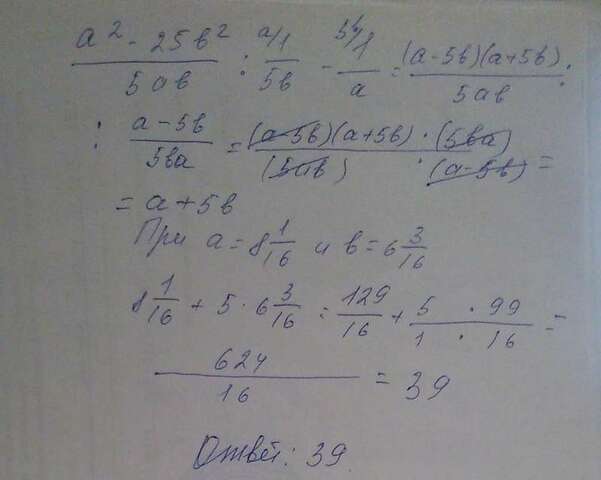 (a² - 25b²)/(5ab) : ᵃ⁄1/(5b) - ⁵ᵇ⁄1/a = ((a-5b)(a+5b))/(5ab) :
: (a-5b)/(5ba) = ((a-5b)(a+5b) · (5ba))/((5ab) · (a-5b)) =
= a+5b
При a=8 1/16 и b=6 3/16
8 1/16 + 5 · 6 3/16 = 129/16 + (5 · 99)/(1 · 16) =
624/16 = 39
Ответ: 39.